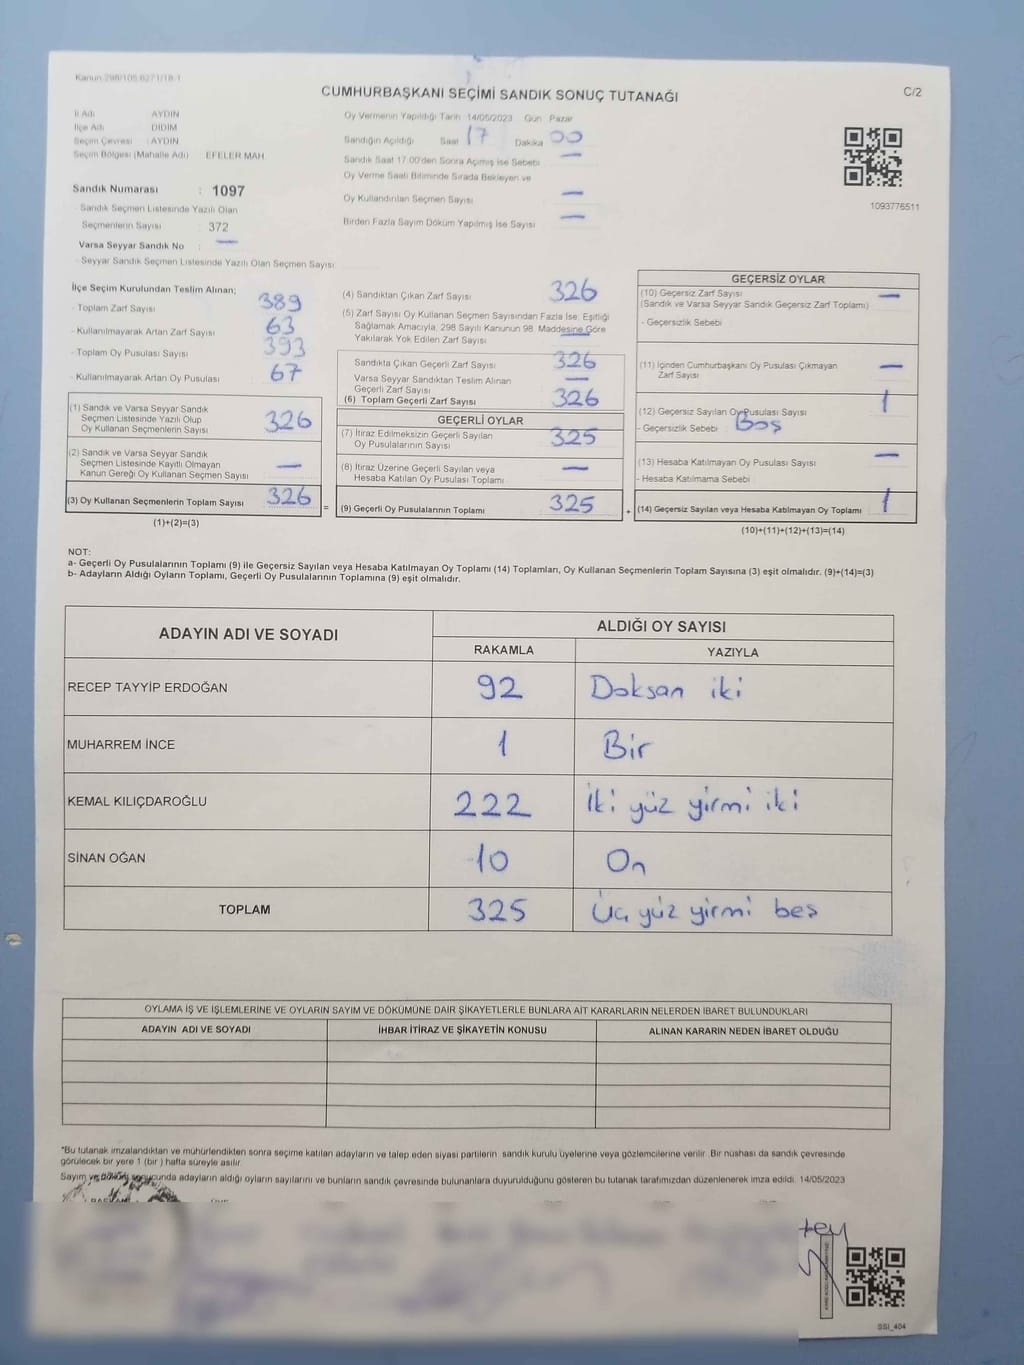 Kanun:298/105.6271/18.1
CUMHURBAŞKANI SEÇİMİ SANDIK SONUÇ TUTANAĞI
C/2
İl Adı AYDIN
İlçe Adı DİDİM
Seçim Çevresi : AYDIN
Seçim Bölgesi (Mahalle Adı) EFELER MAH
Sandık Numarası : 1097
Sandık Seçmen Listesinde Yazılı Olan
Seçmenlerin Sayısı : 372
Varsa Seyyar Sandık No : —
Seyyar Sandık Seçmen Listesinde Yazılı Olan Seçmen Sayısı:
Oy Vermenin Yapıldığı Tarih 14/05/2023 Gün Pazar
Sandığın Açıldığı Saat 17 Dakika 00
Sandık Saat 17.00'den Sonra Açılmış İse Sebebi —
Oy Verme Saati Bitiminde Sırada Bekleyen ve
Oy Kullandırılan Seçmen Sayısı —
Birden Fazla Sayım Döküm Yapılmış İse Sayısı —
1093776511
İlçe Seçim Kurulundan Teslim Alınan;
- Toplam Zarf Sayısı 389
- Kullanılmayarak Artan Zarf Sayısı 63
- Toplam Oy Pusulası Sayısı 393
- Kullanılmayarak Artan Oy Pusulası 67
(1) Sandık ve Varsa Seyyar Sandık
Seçmen Listesinde Yazılı Olup
Oy Kullanan Seçmenlerin Sayısı 326
(2) Sandık ve Varsa Seyyar Sandık
Seçmen Listesinde Kayıtlı Olmayan
Kanun Gereği Oy Kullanan Seçmen Sayısı —
(3) Oy Kullanan Seçmenlerin Toplam Sayısı 326
(1)+(2)=(3)
=
(4) Sandıktan Çıkan Zarf Sayısı 326
(5) Zarf Sayısı Oy Kullanan Seçmen Sayısından Fazla İse, Eşitliği
Sağlamak Amacıyla, 298 Sayılı Kanunun 98. Maddesine Göre
Yakılarak Yok Edilen Zarf Sayısı —
Sandıkta Çıkan Geçerli Zarf Sayısı 326
Varsa Seyyar Sandıktan Teslim Alınan
Geçerli Zarf Sayısı —
(6) Toplam Geçerli Zarf Sayısı 326
GEÇERLİ OYLAR
(7) İtiraz Edilmeksizin Geçerli Sayılan
Oy Pusulalarının Sayısı 325
(8) İtiraz Üzerine Geçerli Sayılan veya
Hesaba Katılan Oy Pusulası Toplamı —
(9) Geçerli Oy Pusulalarının Toplamı 325
+
GEÇERSİZ OYLAR
(10) Geçersiz Zarf Sayısı —
(Sandık ve Varsa Seyyar Sandık Geçersiz Zarf Toplamı)
- Geçersizlik Sebebi
(11) İçinden Cumhurbaşkanı Oy Pusulası Çıkmayan
Zarf Sayısı —
(12) Geçersiz Sayılan Oy Pusulası Sayısı 1
- Geçersizlik Sebebi Boş
(13) Hesaba Katılmayan Oy Pusulası Sayısı —
- Hesaba Katılmama Sebebi
(14) Geçersiz Sayılan veya Hesaba Katılmayan Oy Toplamı 1
(10)+(11)+(12)+(13)=(14)
NOT:
a- Geçerli Oy Pusulalarının Toplamı (9) ile Geçersiz Sayılan veya Hesaba Katılmayan Oy Toplamı (14) Toplamları, Oy Kullanan Seçmenlerin Toplam Sayısına (3) eşit olmalıdır. (9)+(14)=(3)
b- Adayların Aldığı Oyların Toplamı, Geçerli Oy Pusulalarının Toplamına (9) eşit olmalıdır.
ADAYIN ADI VE SOYADI
ALDIĞI OY SAYISI
RAKAMLA YAZIYLA
RECEP TAYYİP ERDOĞAN 92 Doksan iki
MUHARREM İNCE 1 Bir
KEMAL KILIÇDAROĞLU 222 İki yüz yirmi iki
SİNAN OĞAN 10 On
TOPLAM 325 Üç yüz yirmi beş
OYLAMA İŞ VE İŞLEMLERİNE VE OYLARIN SAYIM VE DÖKÜMÜNE DAİR ŞİKAYETLERLE BUNLARA AİT KARARLARIN NELERDEN İBARET BULUNDUKLARI
ADAYIN ADI VE SOYADI İHBAR İTİRAZ VE ŞİKAYETİN KONUSU ALINAN KARARIN NEDEN İBARET OLDUĞU
*Bu tutanak imzalandıktan ve mühürlendikten sonra seçime katılan adayların ve talep eden siyasi partilerin sandık kurulu üyelerine veya gözlemcilerine verilir. Bir nüshası da sandık çevresinde
görülecek bir yere 1 (bir) hafta süreyle asılır.
Sayım ve döküm sonucunda adayların aldığı oyların sayılarını ve bunların sandık çevresinde bulunanlara duyurulduğunu gösteren bu tutanak tarafımızdan düzenlenerek imza edildi. 14/05/2023
SSİ_404